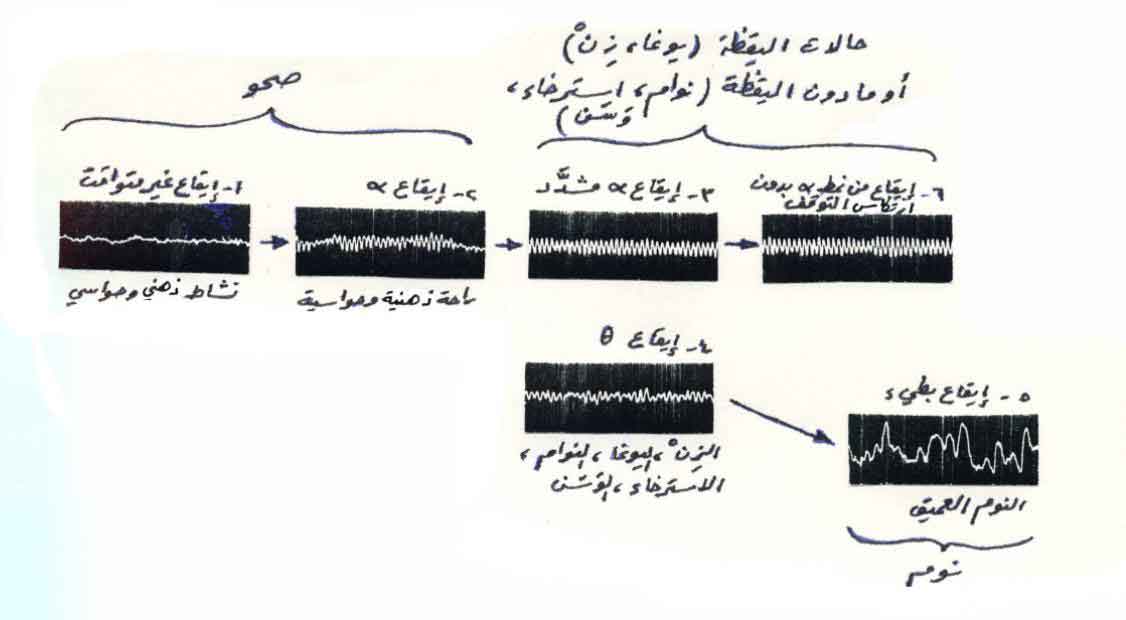 حالات اليقظة (يوغا، زِنْ)
أو مادون اليقظة (نوام، استرخاء،
وَسَن)
صحو
١- إيقاع غير متواقت
نشاط ذهني وحواسي
٢- إيقاع α
راحة ذهنية وحواسية
٣- إيقاع α مشدَّد
٦- إيقاع من نمط α بدون
ارتكاس التوقف
٤- إيقاع θ
الزنْ، اليوغا، النوام،
الاسترخاء، الوَسَن
٥- إيقاع بطيء
النوم العميق
نوم